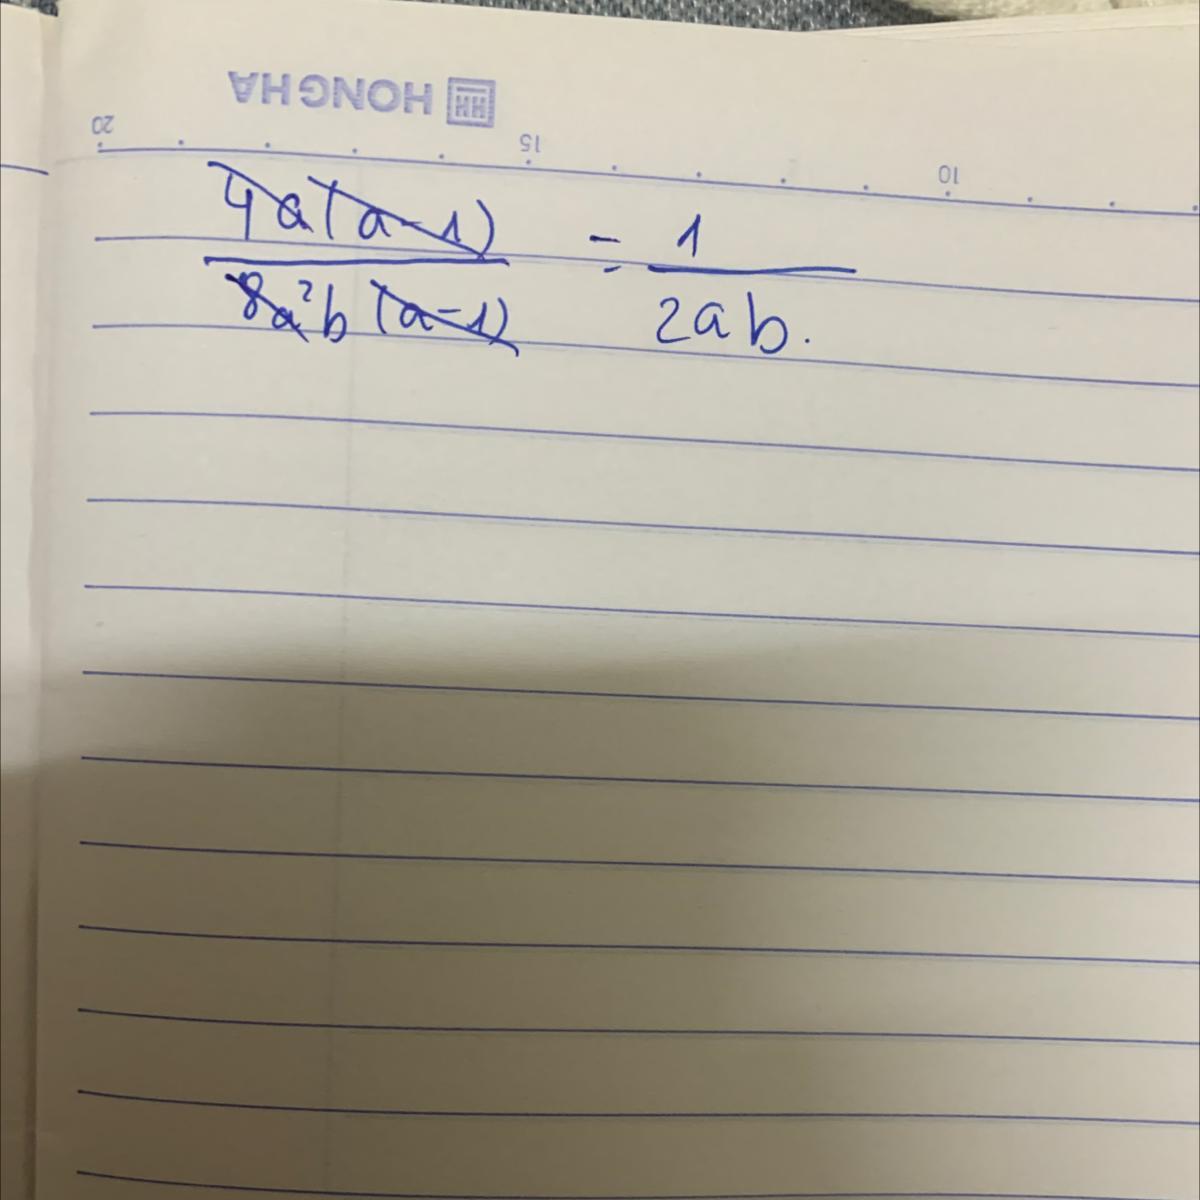 HONG HA
20 15 10
4a(a-1) = 1
8a²b(a-1) 2ab.